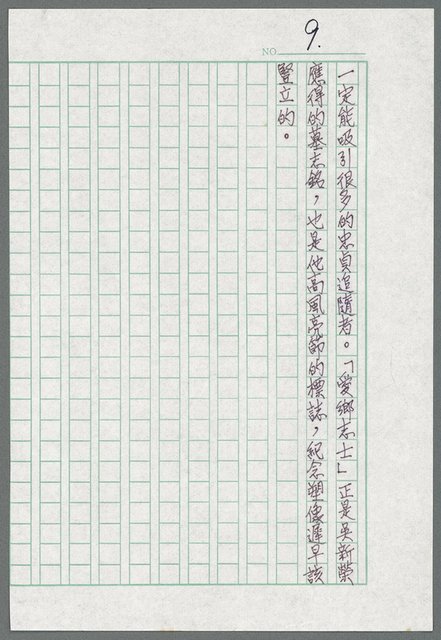 NO. 9.
一定能吸引很多的忠貞追隨者。「愛鄉志士」正是吳新榮
應得的墓志銘，也是他高風亮節的標誌，紀念塑像遲早該
豎立的。